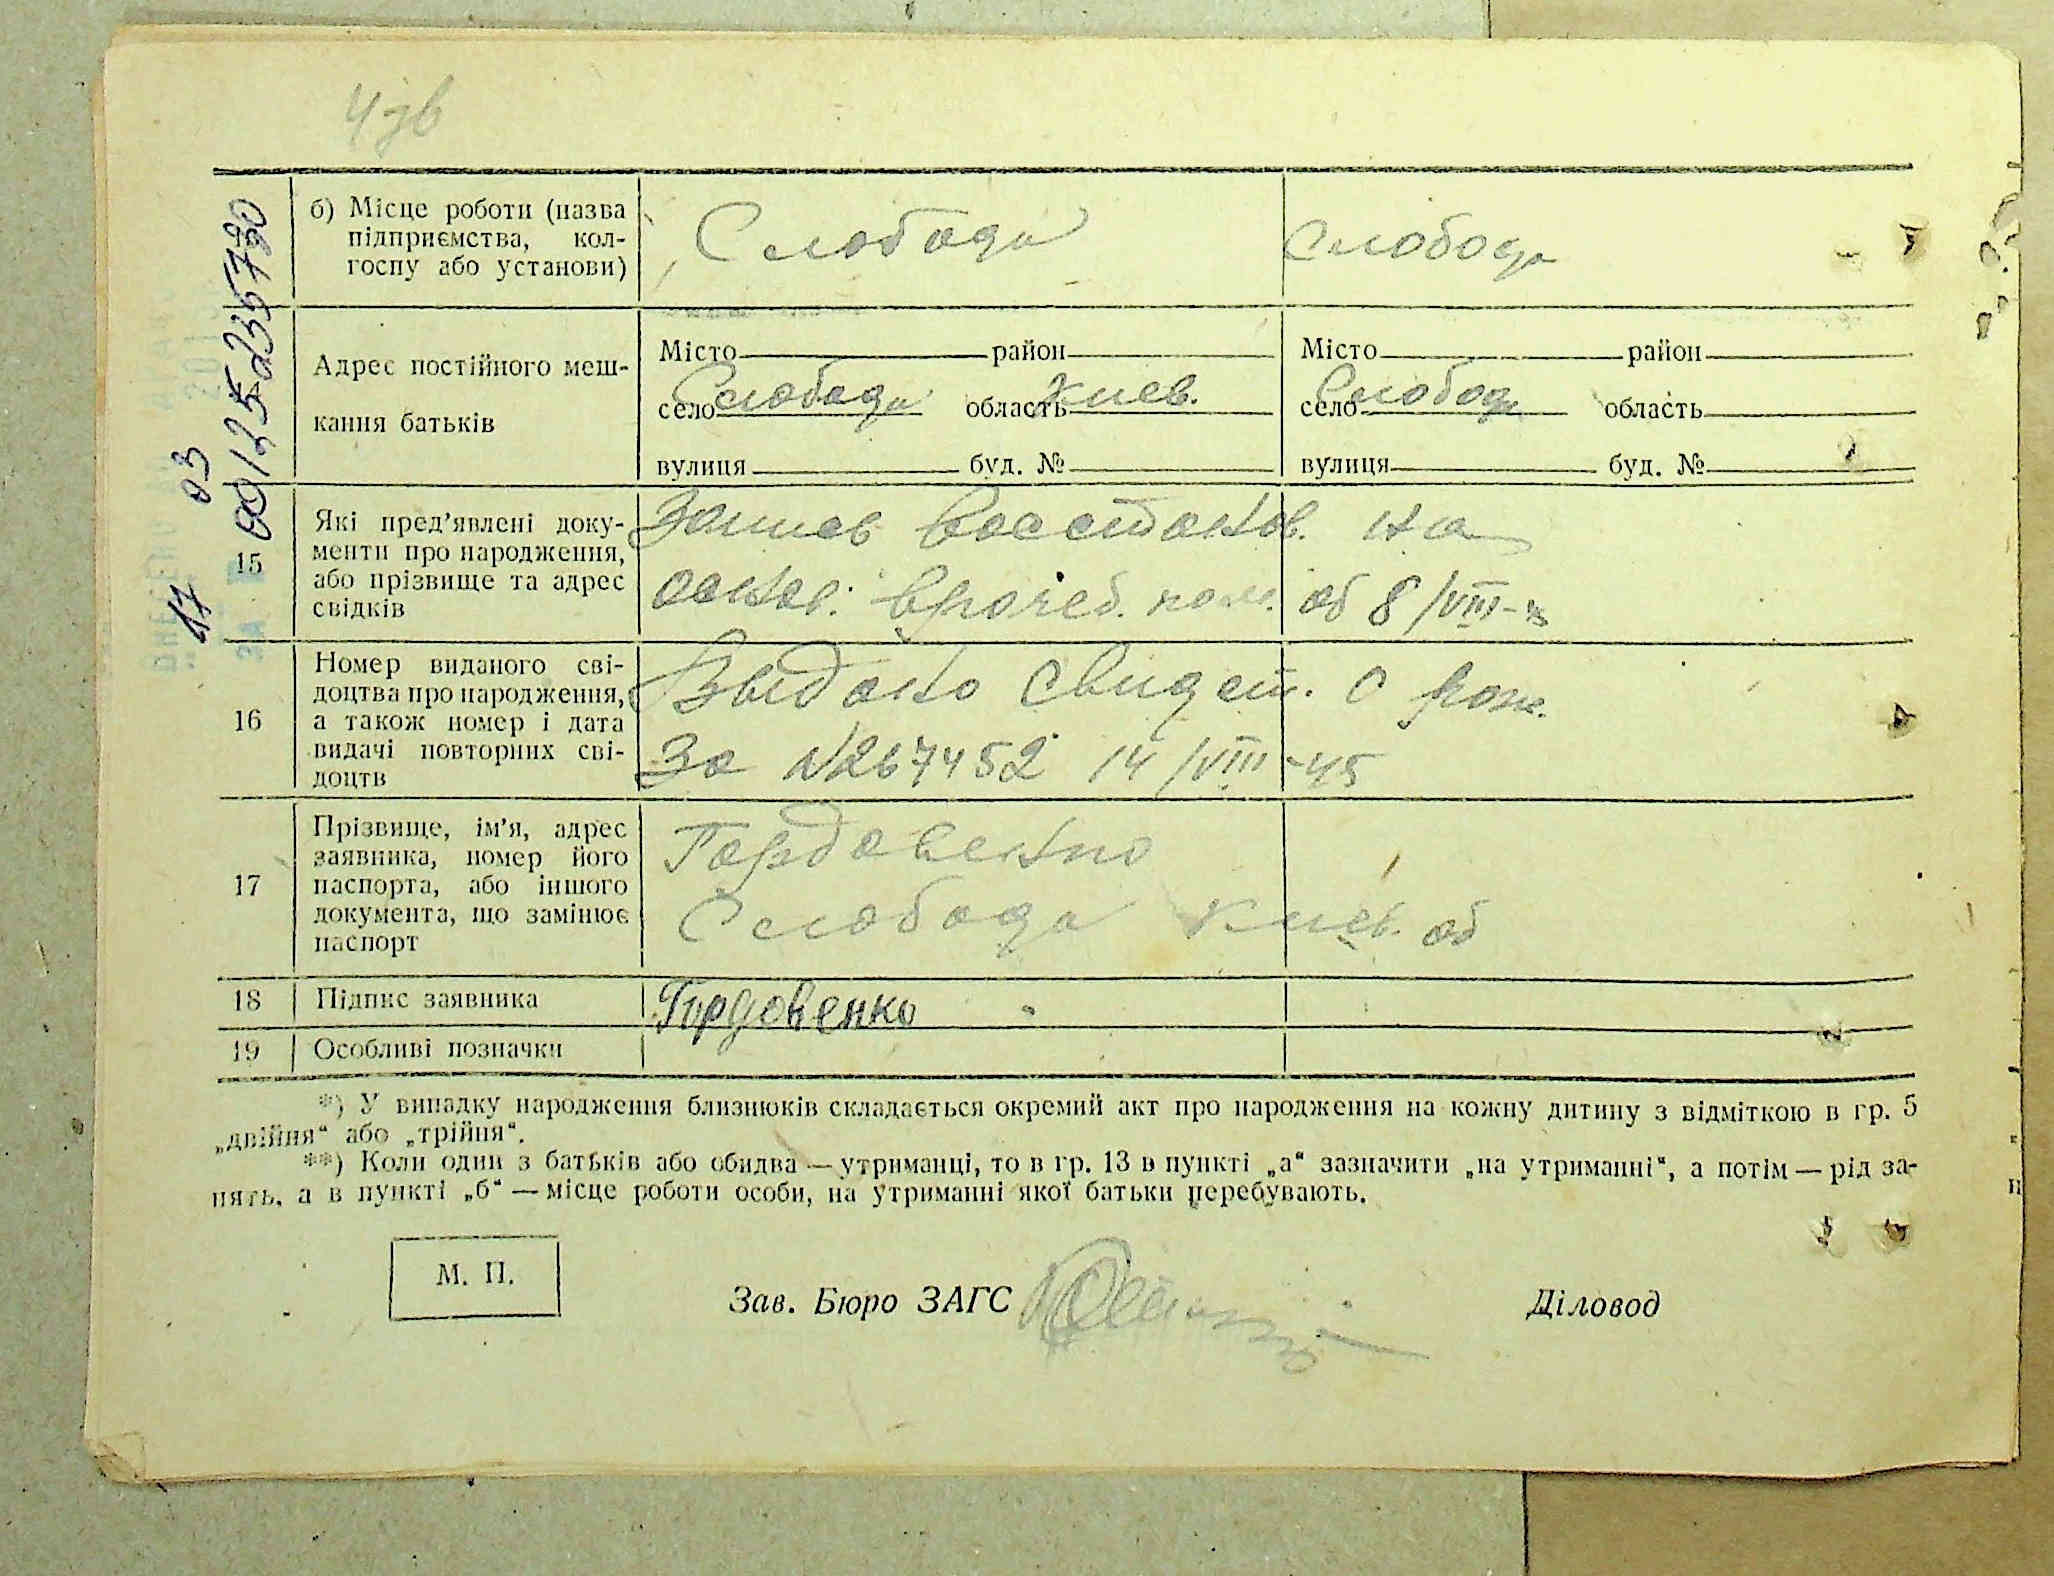 4 зв
б) Місце роботи (назва
підприємства, кол-
госпу або установи)
Слобода
Слобода
Адрес постійного меш-
кання батьків
Місто район
село Слобода область Киев.
вулиця буд. №
Місто район
село Слобода область
вулиця буд. №
15
Які пред'явлені доку-
менти про народження,
або прізвище та адрес
свідків
Запись восстанов. на
основ. врачеб. пом. об 8/VIII-45
16
Номер виданого сві-
доцтва про народження,
а також номер і дата
видачі повторних сві-
доцтв
Выдано свидет. о рож.
За N267452 14/VIII-45
17
Прізвище, ім'я, адрес
заявника, номер його
паспорта, або іншого
документа, що замінює
паспорт
Гордовенко
Слобода Киев. об
18
Підпис заявника
Гордовенко
19
Особливі позначки
*) У випадку народження близнюків складається окремий акт про народження на кожну дитину з відміткою в гр. 5
„двійня“ або „трійня“.
**) Коли один з батьків або обидва — утриманці, то в гр. 13 в пункті „а“ зазначити „на утриманні“, а потім — рід за-
нять, а в пункті „б“ — місце роботи особи, на утриманні якої батьки перебувають.
М. П.
Зав. Бюро ЗАГС
Діловод
17 03